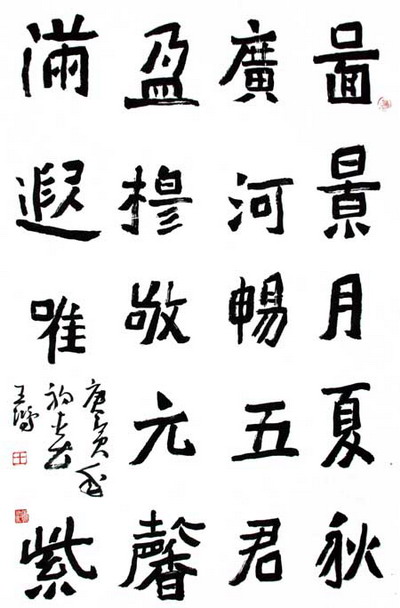 啚景月夏秋
廣河暢五君
盈穆敬元馨
滿遐唯紫
庚寅
王鏞